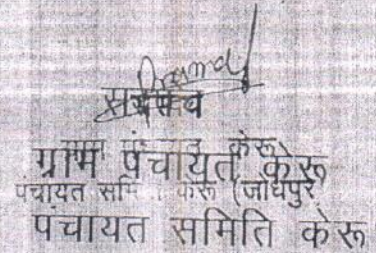 सरपंच
ग्राम पंचायत केरू
पंचायत समि केरू (जोधपुर
पंचायत समिति केरू